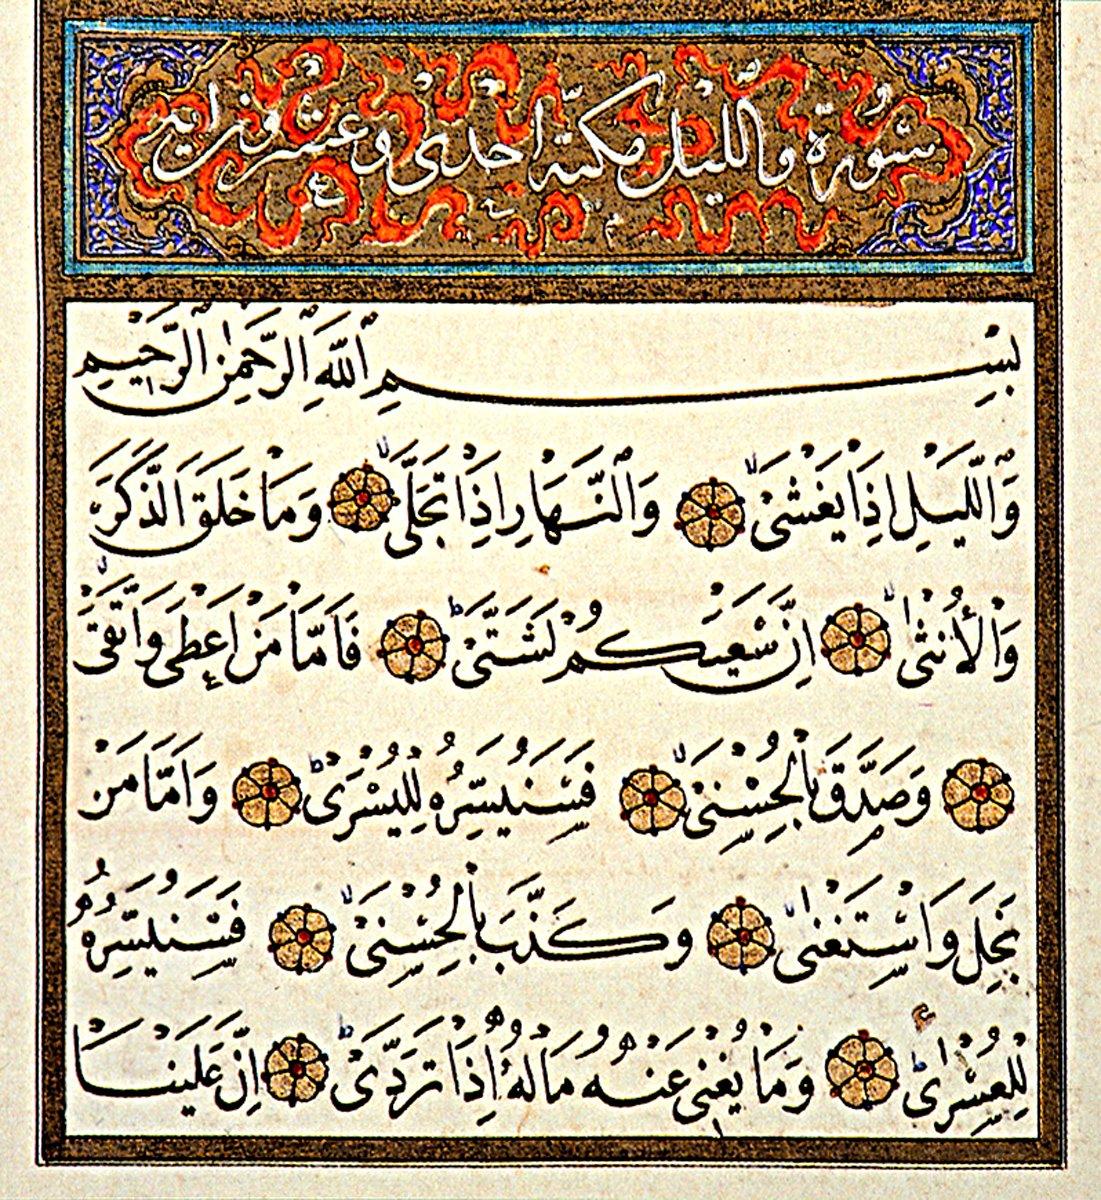 سورة والليل مكية احدى وعشرون اية
بِسْمِ اللّٰهِ الرَّحْمٰنِ الرَّحِيمِ
وَالَّيْلِ اِذَا يَغْشٰىۙ وَالنَّهَارِ اِذَا تَجَلّٰىۙ وَمَا خَلَقَ الذَّكَرَ
وَالْاُنْثٰىۙ اِنَّ سَعْيَكُمْ لَشَتّٰىۜ فَاَمَّا مَنْ اَعْطٰى وَاتَّقٰىۙ
وَصَدَّقَ بِالْحُسْنٰىۙ فَسَنُيَسِّرُهُ لِلْيُسْرٰىۜ وَاَمَّا مَنْ
بَخِلَ وَاسْتَغْنٰىۙ وَكَذَّبَ بِالْحُسْنٰىۙ فَسَنُيَسِّرُهُ
لِلْعُسْرٰىۜ وَمَا يُغْنِى عَنْهُ مَالُهُٓ اِذَا تَرَدّٰىۜ اِنَّ عَلَيْنَا